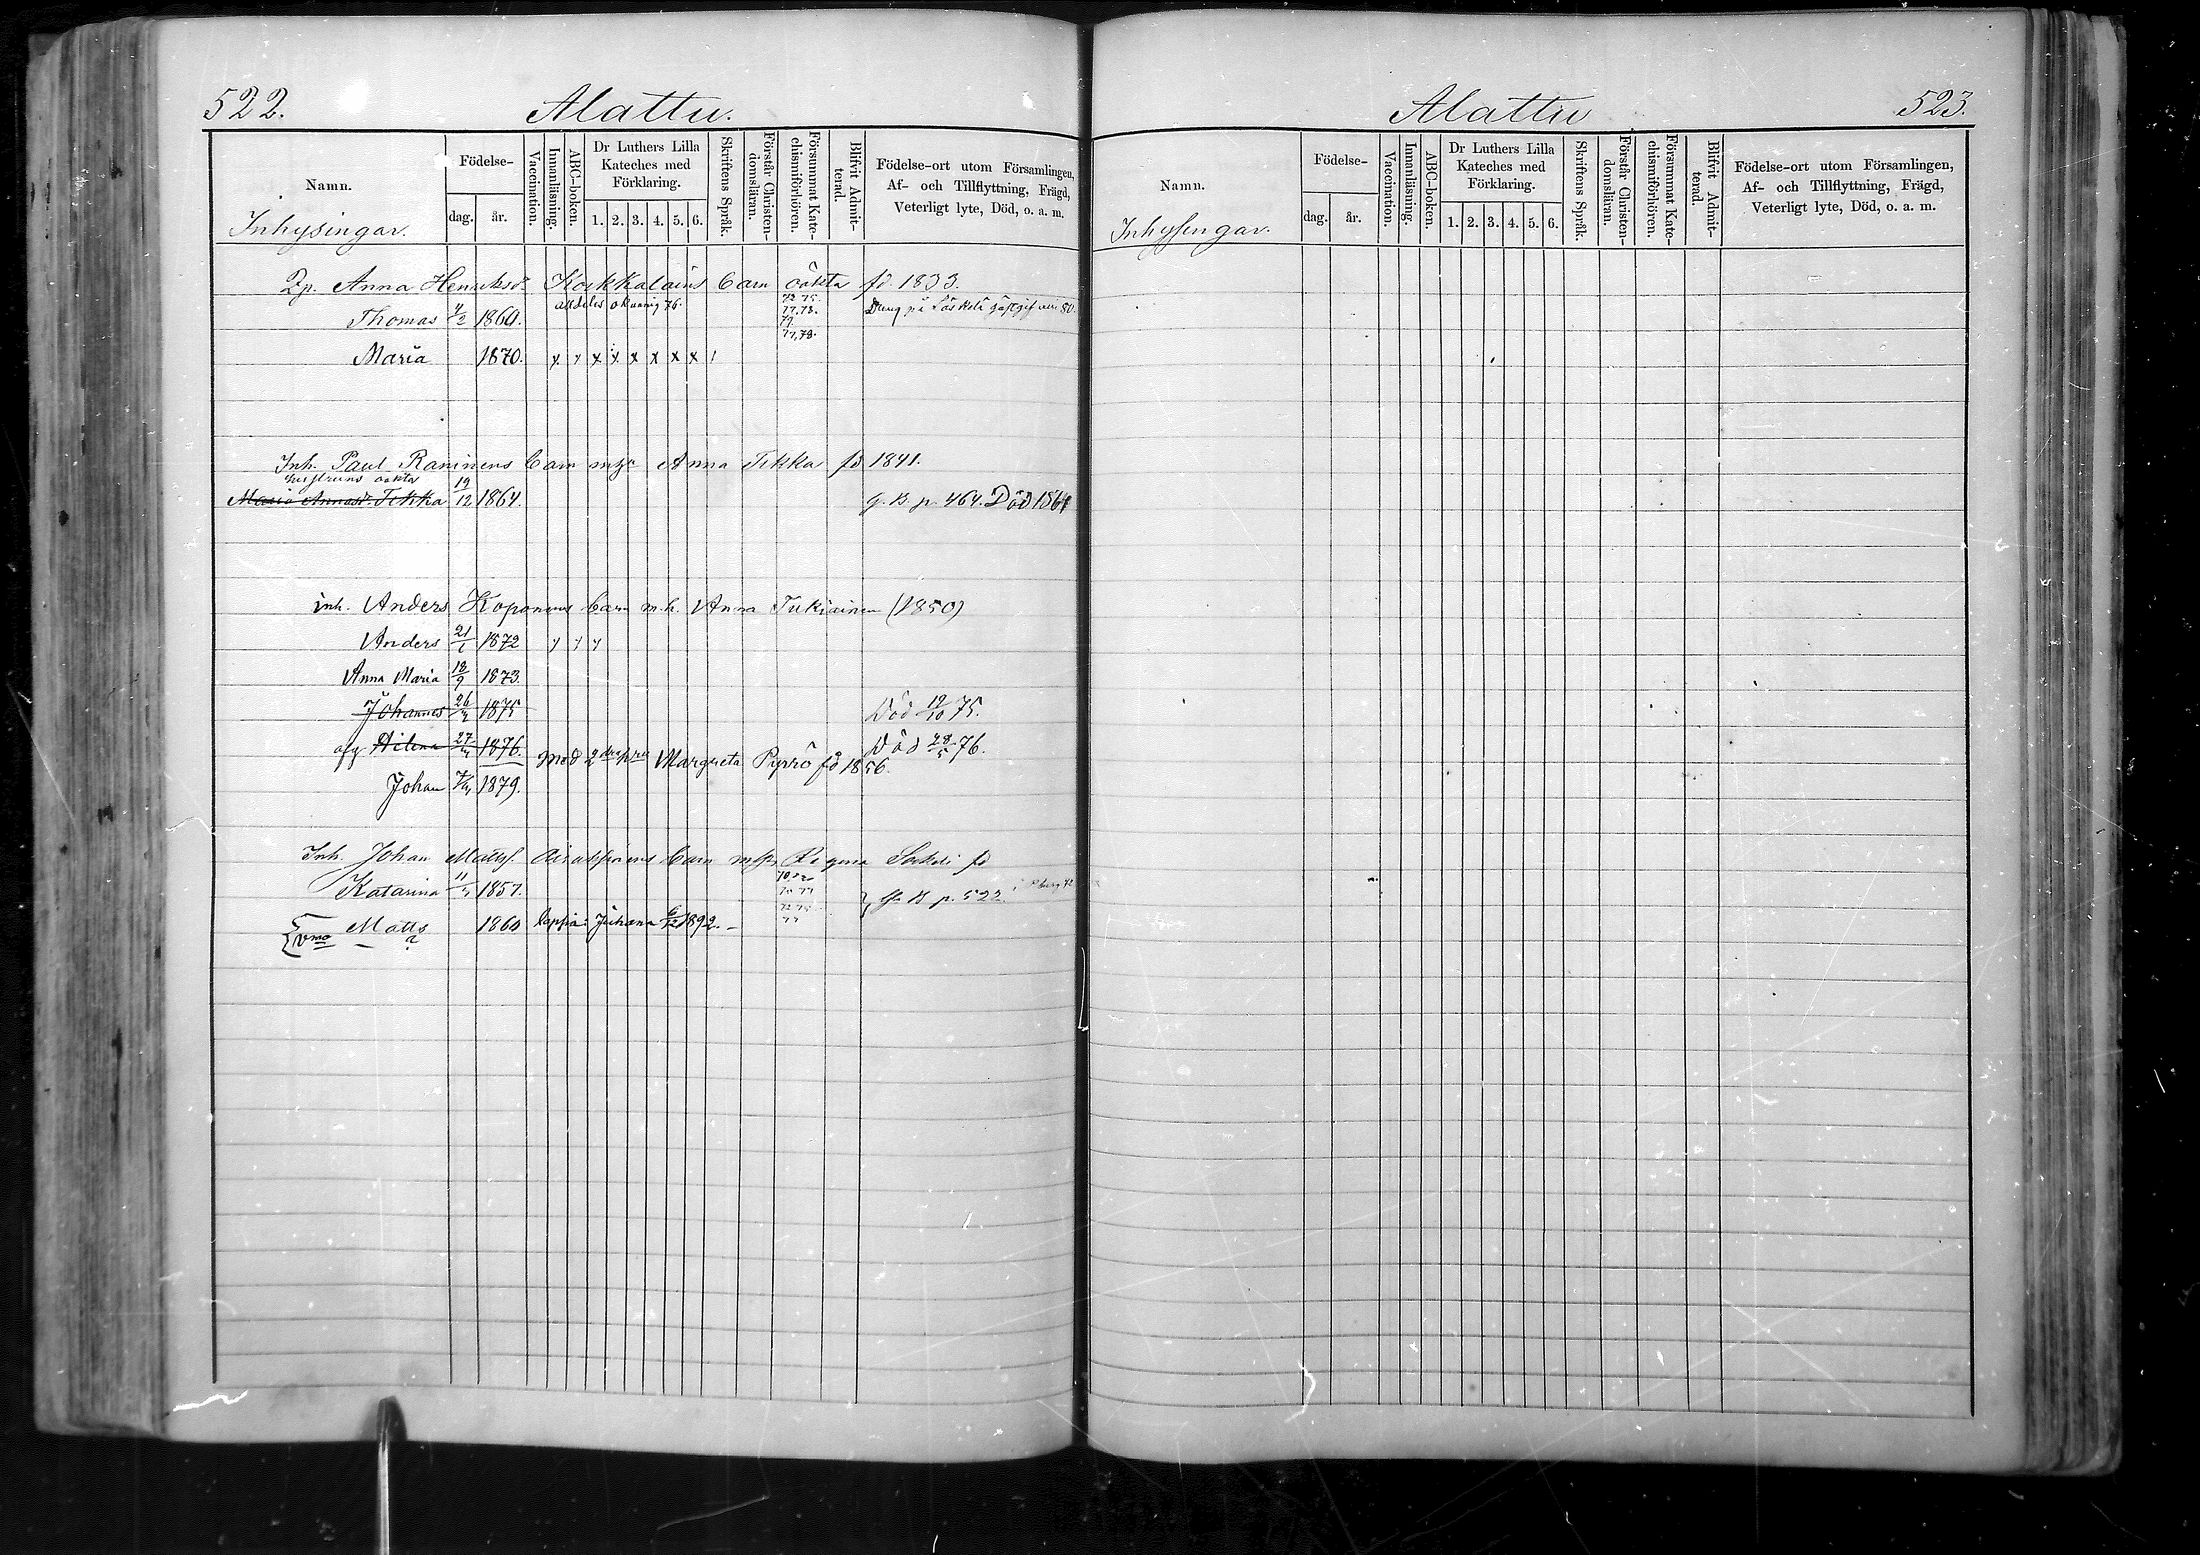 522.
Alattu.
Namn.
Födelse-
dag.
år.
Vaccination.
Innanläsning.
ABC-boken.
Dr Luthers Lilla
Kateches med
Förklaring.
1. 2. 3. 4. 5. 6.
Skriftens Språk.
Förstår Christen-
domsläran.
Försummat Kate-
chismiförhören.
Blifvit Admit-
terad.
Födelse-ort utom Församlingen,
Af- och Tillflyttning, Frägd,
Veterligt lyte, Död, o. a. m.
Inhysingar.
Anna Kokkalains barn oäkta fd. 1833.
Thomas 1860. alldeles okunnig 76.
72 75.
77. 78.
79.
77, 78.
Maria 1870. x x x x x x x x
Inh. Paul Raninens barn Anna Tikka fd 1841.
hustruns oäkta
Maria Annasr Tikka 19/12 1864. g. B. p. 464. Död 1864
inh. Anders Koponens barn m. h. Anna Tukiainen (1850)
Anders 1872
Anna Maria 18/9 1873.
Johannes 1875 Död 19/10 75.
Helena 1876. Död 28/5 76.
Med 2dra Margreta Pyrrö fd 1856.
Johan 1879.
Inh. Johan Matts. barn Regina Sorkeli fd
Katarina 1857. B p. 522.
Matts 1860 Juhana 1892.
?
Alattu
523.
Namn.
Födelse-
dag.
år.
Vaccination.
Innanläsning.
ABC-boken.
Dr Luthers Lilla
Kateches med
Förklaring.
1. 2. 3. 4. 5. 6.
Skriftens Språk.
Förstår Christen-
domsläran.
Försummat Kate-
chismiförhören.
Blifvit Admit-
terad.
Födelse-ort utom Församlingen,
Af- och Tillflyttning, Frägd,
Veterligt lyte, Död, o. a. m.
Inhysingar.